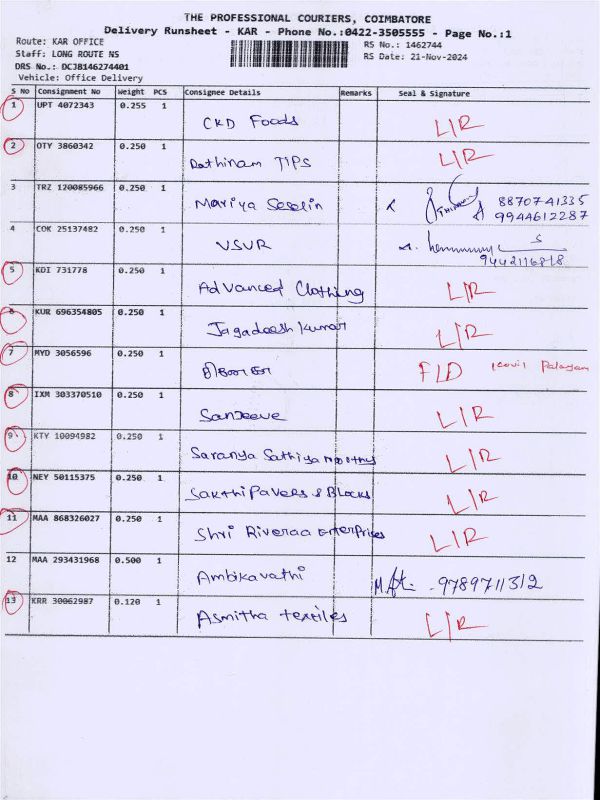 THE PROFESSIONAL COURIERS, COIMBATORE
Delivery Runsheet - KAR - Phone No.:0422-3505555 - Page No.:1
Route: KAR OFFICE
RS No.: 1462744
Staff: LONG ROUTE NS
RS Date: 21-Nov-2024
DRS No.: DCJB146274401
Vehicle: Office Delivery
S No Consignment No Weight PCS Consignee Details Remarks Seal & Signature
1 UPT 4072343 0.255 1 CKD Foods L/R
2 OTY 3860342 0.250 1 Rathinam TIPS L/R
3 TRZ 120085966 0.250 1 Mariya Seselin 8870741335
9944612287
4 COK 25137482 0.250 1 VSVR
5 KDI 731778 0.250 1 Advanced Clothing L/R
6 KUR 696354805 0.250 1 Jagadeesh kumar L/R
7 MYD 3056596 0.250 1 F/D Kovil Palayam
8 IXM 303370510 0.250 1 Sanjeeve L/R
9 KTY 10094982 0.250 1 Saranya Sathiya moorthy L/R
10 NEY 50115375 0.250 1 Sakthi Pavers & Blocks L/R
11 MAA 868326027 0.250 1 Shri Riveraa Enterprises L/R
12 MAA 293431968 0.500 1 Ambikavathi 9789711312
13 KRR 30062987 0.120 1 Asmitha textiles L/R